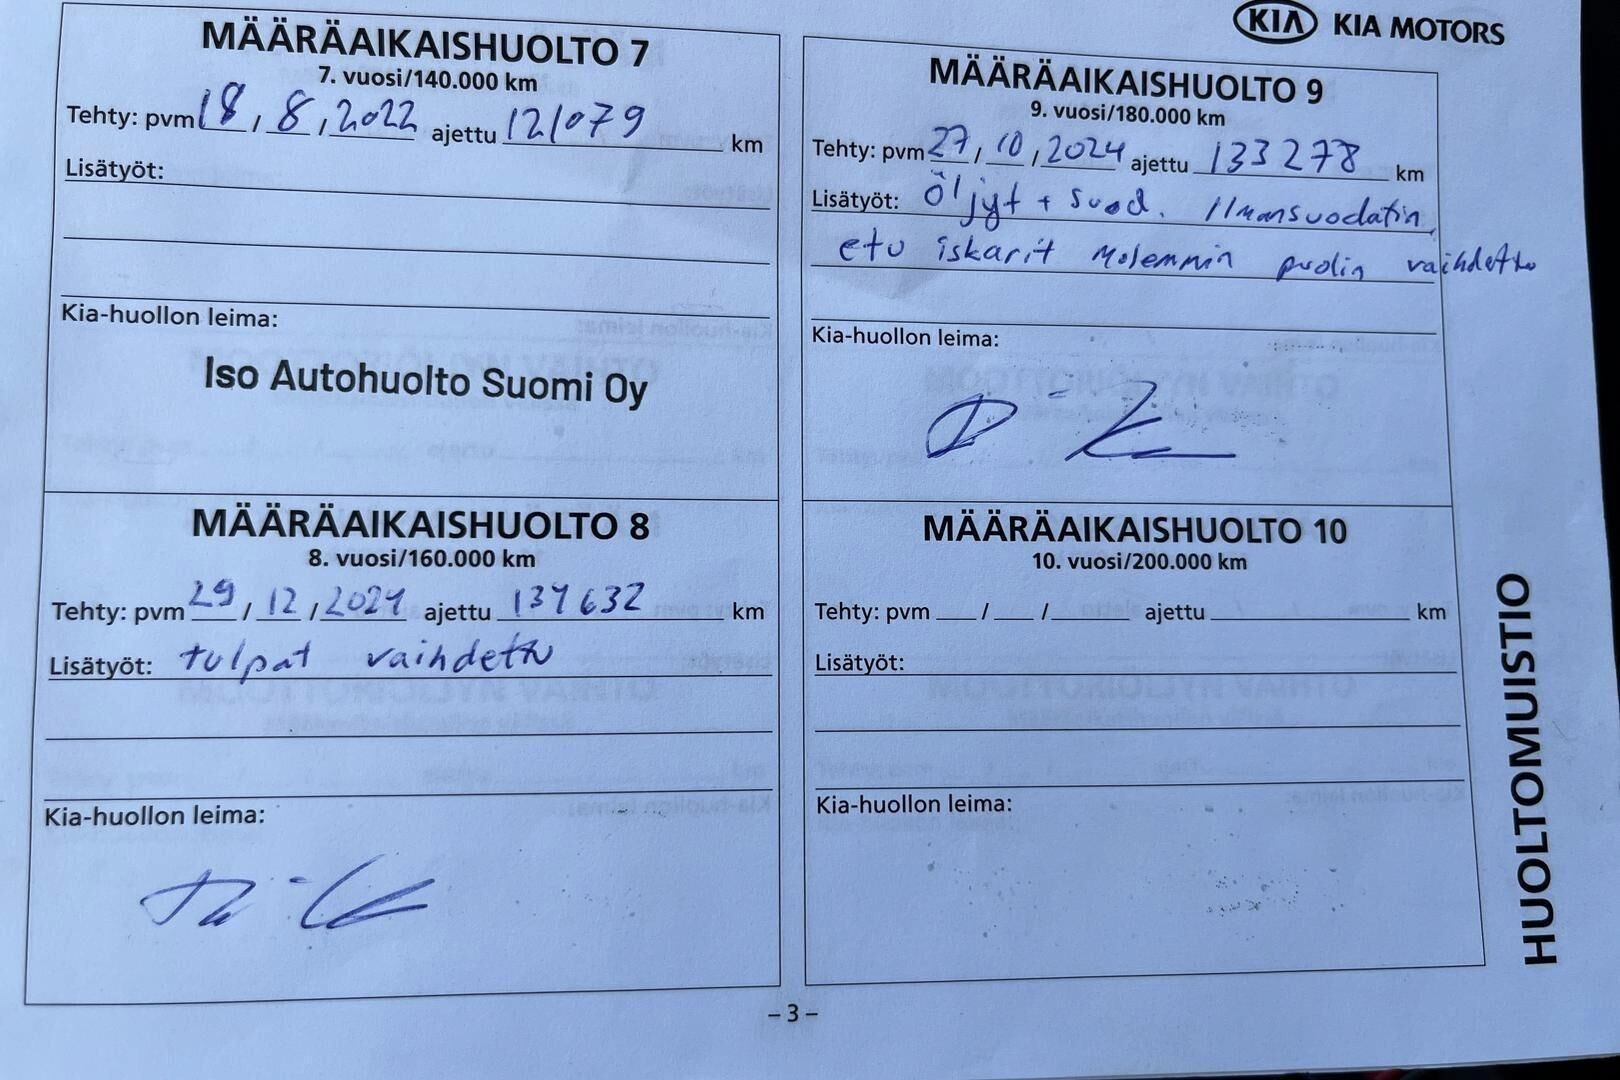 KIA KIA MOTORS
MÄÄRÄAIKAISHUOLTO 7
7. vuosi/140.000 km
Tehty: pvm 18 / 8 / 2022 ajettu 121079 km
Lisätyöt:
Kia-huollon leima:
Iso Autohuolto Suomi Oy
MÄÄRÄAIKAISHUOLTO 8
8. vuosi/160.000 km
Tehty: pvm 29 / 12 / 2024 ajettu 134632 km
Lisätyöt: tulpat vaihdettu
Kia-huollon leima:
MÄÄRÄAIKAISHUOLTO 9
9. vuosi/180.000 km
Tehty: pvm 27 / 10 / 2024 ajettu 133278 km
Lisätyöt: Öljyt + suod. Ilmansuodatin,
etu iskarit molemmin puolin vaihdettu
Kia-huollon leima:
MÄÄRÄAIKAISHUOLTO 10
10. vuosi/200.000 km
Tehty: pvm / / ajettu km
Lisätyöt:
Kia-huollon leima:
HUOLTOMUISTIO
– 3 –